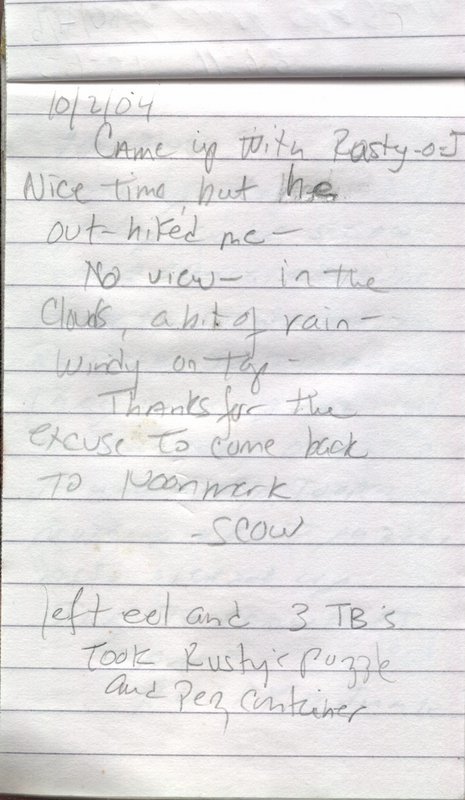 10/2/04
Came up with Rusty-o-J
Nice time, but he
out-hiked me-
No view- in the
Clouds, a bit of rain-
Windy on top-
Thanks for the
excuse to come back
to Noonmark
-SCOW
left eel and 3 TB's
Took Rusty's puzzle
and Pez container